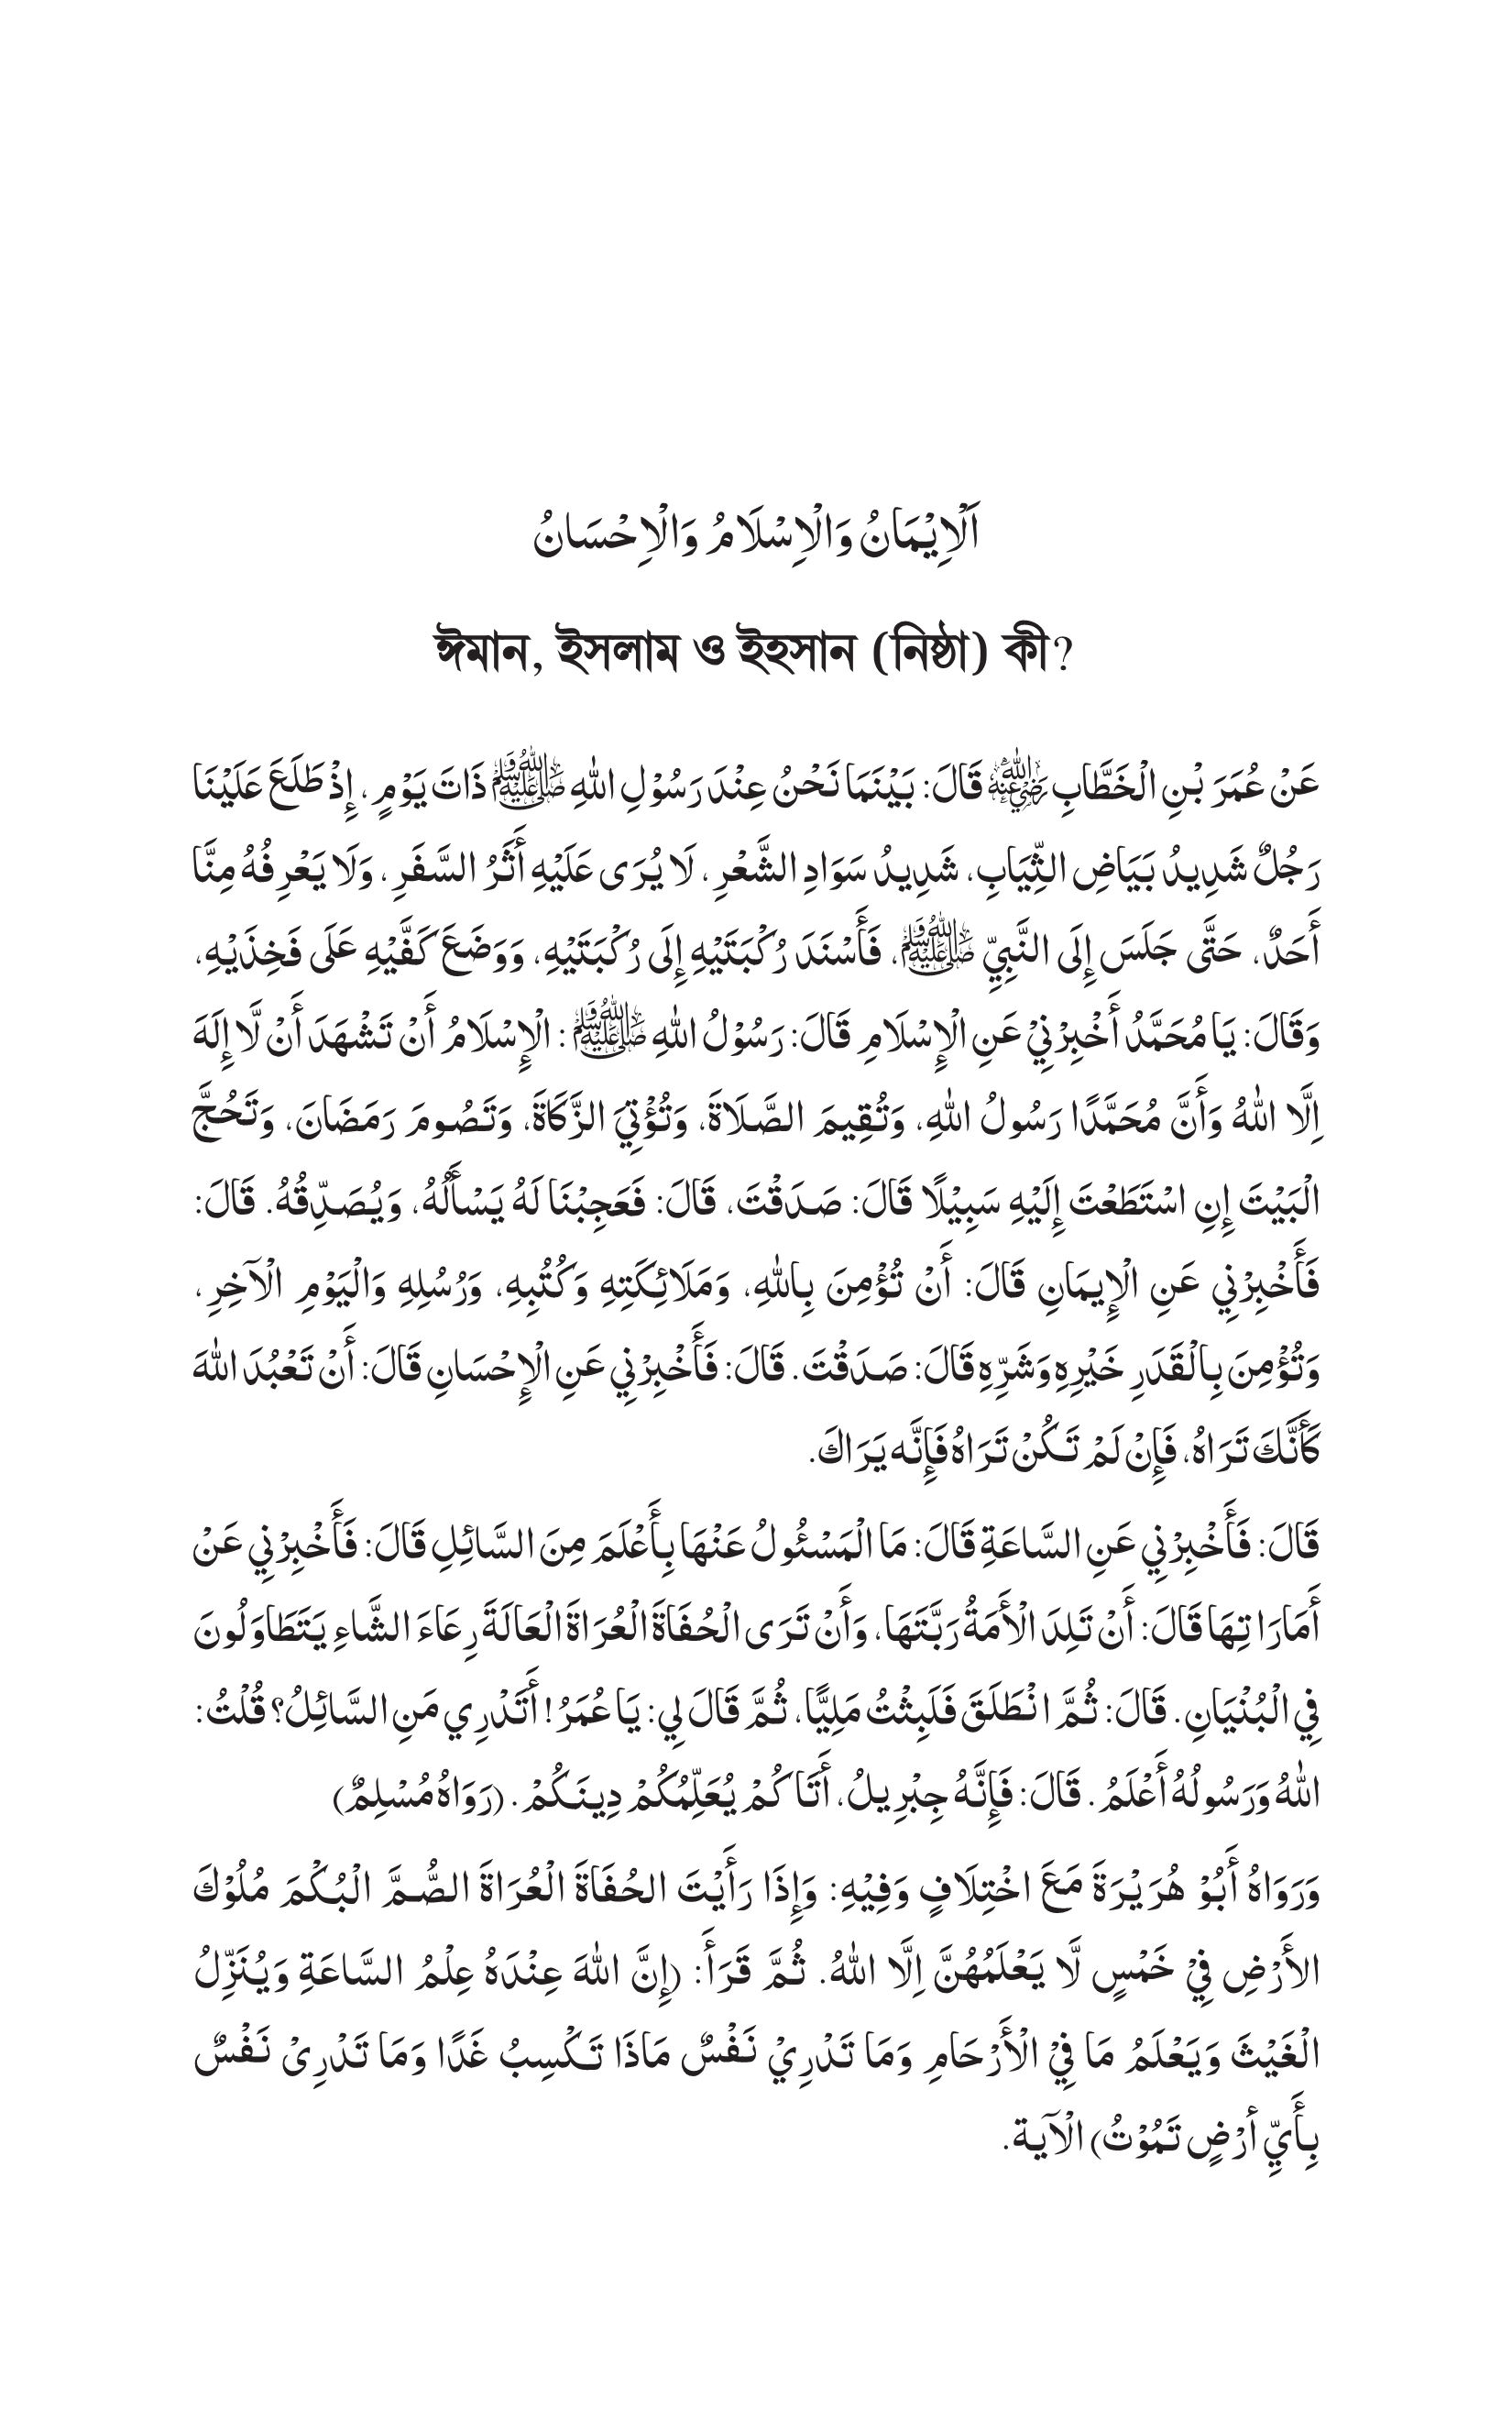 اَلْاِيْمَانُ وَالْاِسْلَامُ وَالْاِحْسَانُ
ঈমান, ইসলাম ও ইহসান (নিষ্ঠা) কী?
عَنْ عُمَرَ بْنِ الْخَطَّابِ ﵁ قَالَ: بَيْنَمَا نَحْنُ عِنْدَ رَسُوْلِ اللهِ ﷺ ذَاتَ يَوْمٍ، إِذْ طَلَعَ عَلَيْنَا
رَجُلٌ شَدِيدُ بَيَاضِ الثِّيَابِ، شَدِيدُ سَوَادِ الشَّعْرِ، لَا يُرَى عَلَيْهِ أَثَرُ السَّفَرِ، وَلَا يَعْرِفُهُ مِنَّا
أَحَدٌ، حَتَّى جَلَسَ إِلَى النَّبِيِّ ﷺ، فَأَسْنَدَ رُكْبَتَيْهِ إِلَى رُكْبَتَيْهِ، وَوَضَعَ كَفَّيْهِ عَلَى فَخِذَيْهِ،
وَقَالَ: يَا مُحَمَّدُ أَخْبِرْنِيْ عَنِ الْإِسْلَامِ قَالَ: رَسُوْلُ اللهِ ﷺ: الْإِسْلَامُ أَنْ تَشْهَدَ أَنْ لَّا إِلَهَ
اِلَّا اللهُ وَأَنَّ مُحَمَّدًا رَسُولُ اللهِ، وَتُقِيمَ الصَّلَاةَ، وَتُؤْتِيَ الزَّكَاةَ، وَتَصُومَ رَمَضَانَ، وَتَحُجَّ
الْبَيْتَ إِنِ اسْتَطَعْتَ إِلَيْهِ سَبِيْلًا قَالَ: صَدَقْتَ، قَالَ: فَعَجِبْنَا لَهُ يَسْأَلُهُ، وَيُصَدِّقُهُ. قَالَ:
فَأَخْبِرْنِي عَنِ الْإِيمَانِ قَالَ: أَنْ تُؤْمِنَ بِاللهِ، وَمَلَائِكَتِهِ وَكُتُبِهِ، وَرُسُلِهِ وَالْيَوْمِ الْآخِرِ،
وَتُؤْمِنَ بِالْقَدَرِ خَيْرِهِ وَشَرِّهِ قَالَ: صَدَقْتَ. قَالَ: فَأَخْبِرْنِي عَنِ الْإِحْسَانِ قَالَ: أَنْ تَعْبُدَ اللهَ
كَأَنَّكَ تَرَاهُ، فَإِنْ لَمْ تَكُنْ تَرَاهُ فَإِنَّه يَرَاكَ.
قَالَ: فَأَخْبِرْنِي عَنِ السَّاعَةِ قَالَ: مَا الْمَسْئُولُ عَنْهَا بِأَعْلَمَ مِنَ السَّائِلِ قَالَ: فَأَخْبِرْنِي عَنْ
أَمَارَاتِهَا قَالَ: أَنْ تَلِدَ الْأَمَةُ رَبَّتَهَا، وَأَنْ تَرَى الْحُفَاةَ الْعُرَاةَ الْعَالَةَ رِعَاءَ الشَّاءِ يَتَطَاوَلُونَ
فِي الْبُنْيَانِ. قَالَ: ثُمَّ انْطَلَقَ فَلَبِثْتُ مَلِيًّا، ثُمَّ قَالَ لِي: يَا عُمَرُ! أَتَدْرِي مَنِ السَّائِلُ؟ قُلْتُ:
اللهُ وَرَسُولُهُ أَعْلَمُ. قَالَ: فَإِنَّهُ جِبْرِيلُ، أَتَاكُمْ يُعَلِّمُكُمْ دِينَكُمْ. (رَوَاهُ مُسْلِمٌ)
وَرَوَاهُ أَبُوْ هُرَيْرَةَ مَعَ اخْتِلَافٍ وَفِيْهِ: وَإِذَا رَأَيْتَ الحُفَاةَ الْعُرَاةَ الصُّمَّ الْبُكْمَ مُلُوْكَ
الأَرْضِ فِيْ خَمْسٍ لَّا يَعْلَمُهُنَّ اِلَّا اللهُ. ثُمَّ قَرَأَ: (إِنَّ اللهَ عِنْدَهُ عِلْمُ السَّاعَةِ وَيُنَزِّلُ
الْغَيْثَ وَيَعْلَمُ مَا فِيْ الْأَرْحَامِ وَمَا تَدْرِيْ نَفْسٌ مَاذَا تَكْسِبُ غَدًا وَمَا تَدْرِىْ نَفْسٌ
بِأَيِّ أرْضٍ تَمُوْتُ) الْآيـة.